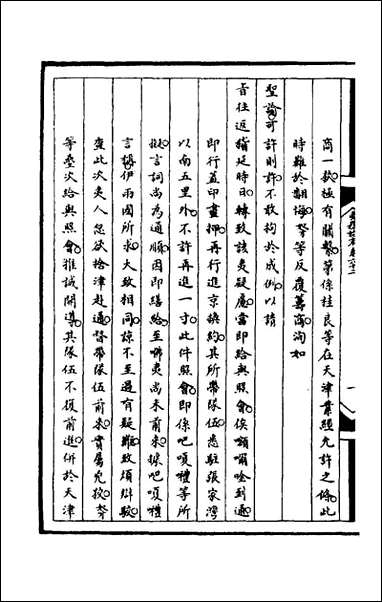 商一欵極有關繫第係桂良等在天津業經允許之條此
時難於翻悔等反覆籌商洵如
聖諭可許則許不敢拘於成例以請
旨往返耽延時日轉致該夷疑慮當即給與照會俟額爾唫到通
即行蓋印畫押再行進京換約其所帶隊伍悉駐張家灣
以南五里外不許再進一寸此件照會即係吧嗄禮等所
擬言詞尚為通順因即繕給至㗲夷尚未前來據吧嗄禮
言稱伊兩國所求大致相同諒不至過有疑難致煩辯駁
查此次夷人忽欲捨津赴通督帶隊伍前來實屬兇狡
等疊次給與照會推誠開導其隊伍不復前進倂於天津